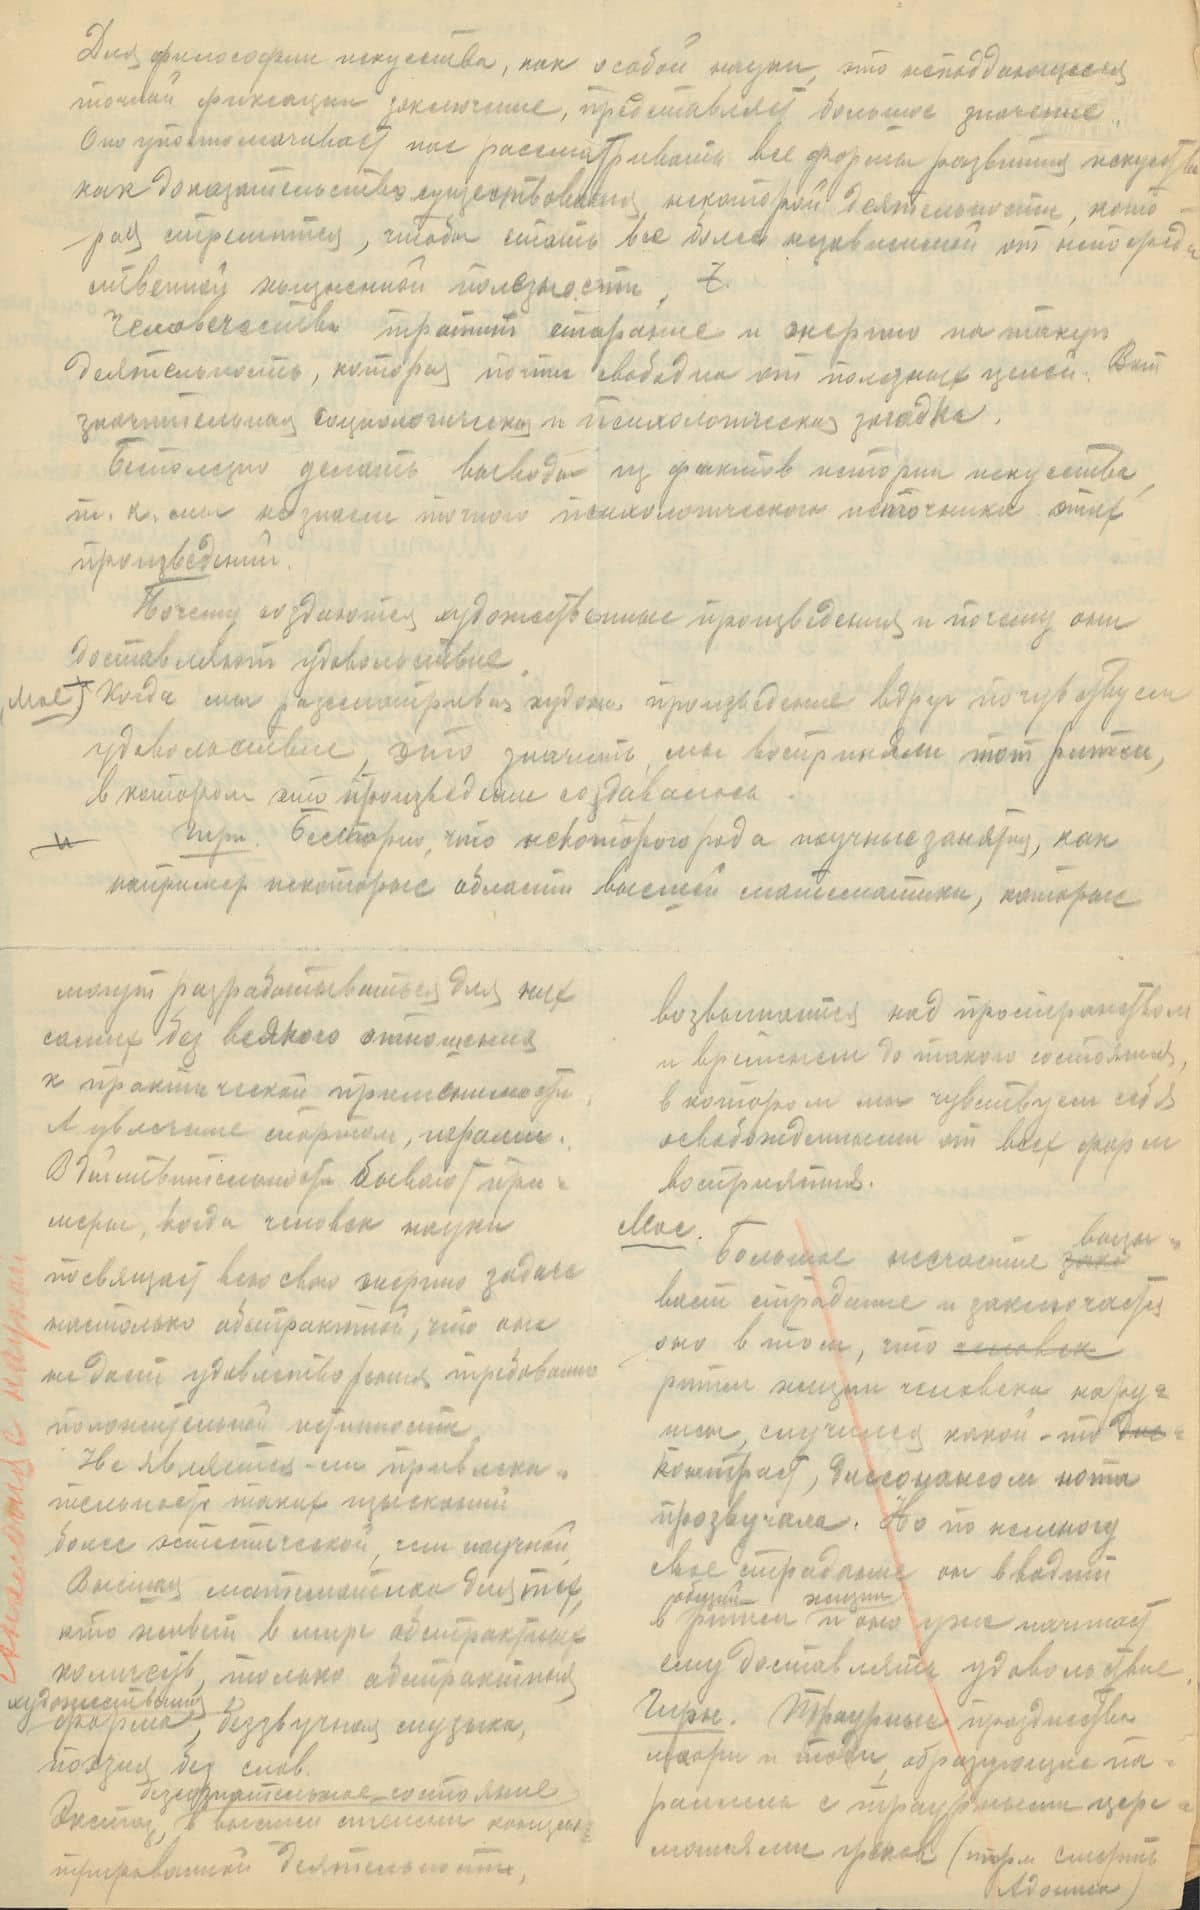 Для философии искусства, как особой науки, это неподдающееся
точной фиксации заключение, представляет большое значение.
Оно уполномачивает нас рассматривать все формы развития искусства
как доказательство существования некоторой деятельности, кото-
рая стремится, чтобы стать все более независимой от непосред-
ственной жизненной полезности.
Человечество тратит старание и энергию на такую
деятельность, которая почти свободна от полезных целей. Вот
значительная социологическая и психологическая загадка.
Бесполезно делать выводы из фактов истории искусства,
т. к. мы не знаем точного психологического источника этих
произведений.
Почему создаются художественные произведения и почему они
доставляют удовольствие.
Мое) Когда мы рассматривая худож. произведение вдруг почувствуем
удовольствие, это значить мы восприняли тот ритм,
в котором это произведение создавалось.
Гирн. Бесспорно, что некоторого рода научные занятия, как
например некоторые области высшей математики, которые
могут разрабатываться для них
самих без всякого отношения
к практической применимости.
А увлечение спортом, играми.
В действительности бывают при-
меры, когда человек науки
посвящает всю свою энергию задаче
настолько абстрактной, что она
не дает удовлетворения требованию
положительной истинности.
Не является-ли привлека-
тельность таких изысканий
более эстетической, чем научной.
Высшая математика для тех,
кто живет в мире абстрактных
количеств, только абстрактная
художественная
форма, беззвучная музыка,
поэзия без слов.
безсознательное состояние
Экстаз, в высшей степени концен-
трированной деятельности,
связанная с наукой
возвышается над пространством
и временем до такого состояния,
в котором мы чувствуем себя
освобожденными от всех форм
восприятия.
Мое.
Большое несчастие вызы-
вает страдание и заключается
оно в том, что человек
ритм жизни человека нару-
шен, случился какой-то дис-
контраст, диссонансом нота
прозвучала. Но по немногу
свое страдание он вводит
общий жизни
в ритм и оно уже начинает
ему доставлять удовольствие.
Гирн. Траурные празднества
маори и тоди, образующие па-
раллель с траурными цере-
мониями греков (торж смерть
Адониса)